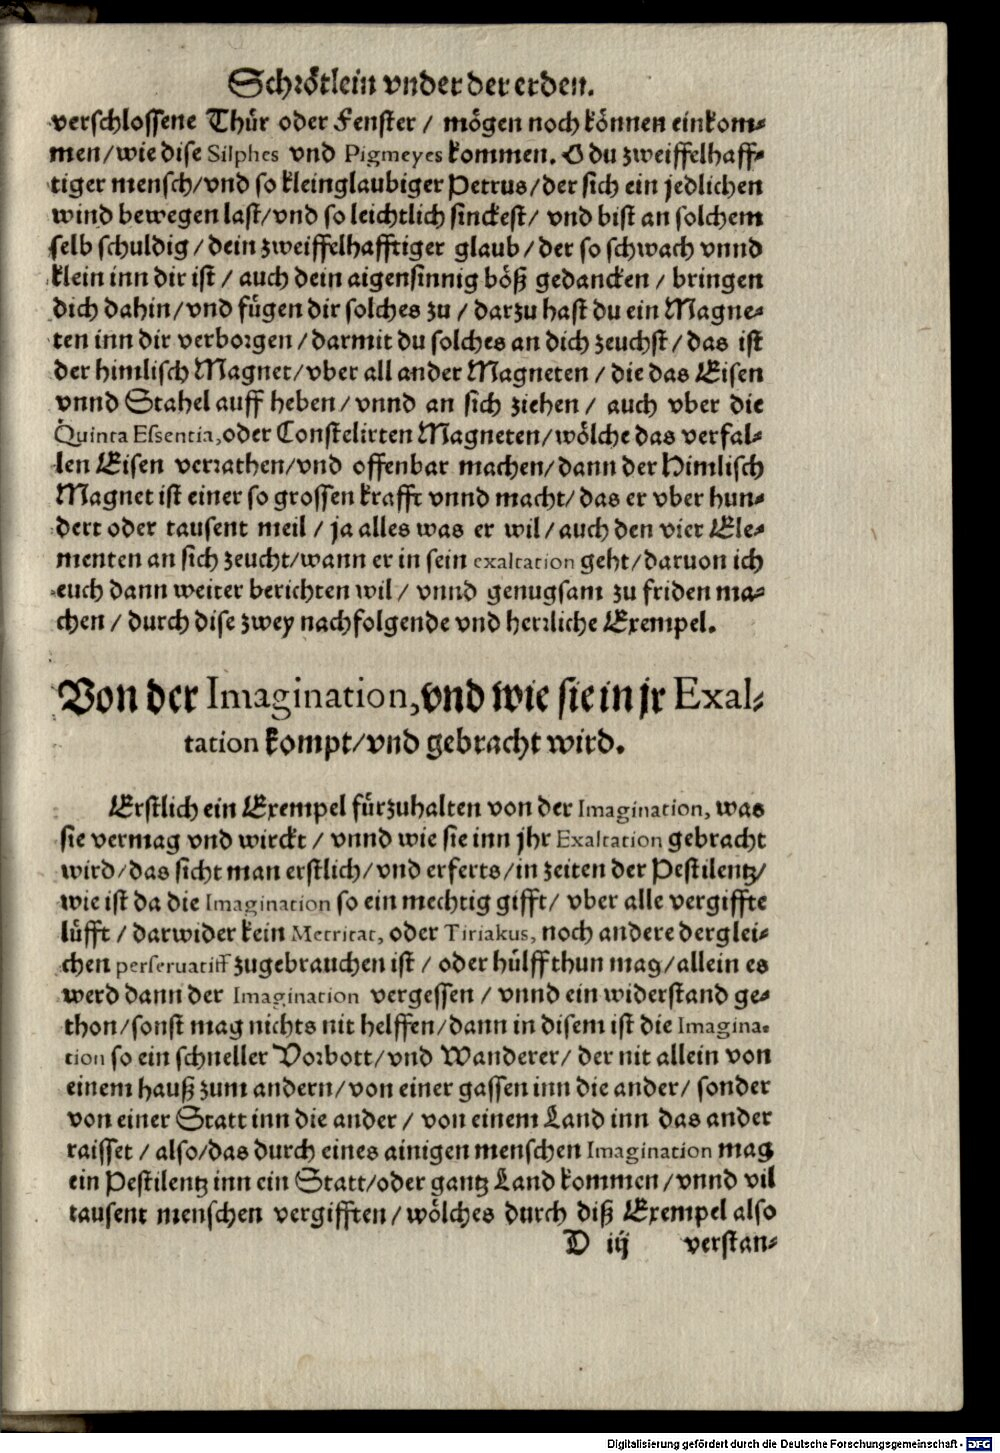 Schrötlein vnder der erden.
verschlossene Thür oder Fenster / mögen noch können einkom-
men/wie dise Silphes vnd Pigmeyes kommen. O du zweiffelhaff-
tiger mensch/vnd so kleinglaubiger Petrus/der sich ein jedlichen
wind bewegen last/vnd so leichtlich sinckest/ vnd bist an solchem
selb schuldig/dein zweiffelhafftiger glaub/der so schwach vnnd
klein inn dir ist / auch dein aigensinnig böß gedancken / bringen
dich dahin/vnd fügen dir solches zu / darzu hast du ein Magne-
ten inn dir verborgen/darmit du solches an dich zeuchst/das ist
der himlisch Magnet/vber all ander Magneten / die das Eisen
vnnd Stahel auff heben/vnnd an sich ziehen/ auch vber die
Quinta Essentia,oder Constelirten Magneten/wölche das verfal-
len Eisen verrathen/vnd offenbar machen/dann der Himlisch
Magnet ist einer so grossen krafft vnnd macht/das er vber hun-
dert oder tausent meil / ja alles was er wil/auch den vier Ele-
menten an sich zeucht/wann er in sein exaltation geht/daruon ich
euch dann weiter berichten wil/ vnnd genugsam zu friden ma-
chen / durch dise zwey nachfolgende vnd herrliche Exempel.
Von der Imagination,vnd wie sie in jr Exal-
tation kompt/vnd gebracht wird.
Erstlich ein Exempel fürzuhalten von der Imagination, was
sie vermag vnd wirckt / vnnd wie sie inn jhr Exaltation gebracht
wird/das sicht man erstlich/vnd erferts/in zeiten der Pestilentz/
wie ist da die Imagination so ein mechtig gifft/ vber alle vergiffte
lüfft / darwider kein Metritat, oder Tiriakus, noch andere derglei-
chen perseruatiff zugebrauchen ist / oder hülff thun mag/allein es
werd dann der Imagination vergessen / vnnd ein widerstand ge-
thon/sonst mag nichts nit helffen/dann in disem ist die Imagina-
tion so ein schneller Vorbott/vnd Wanderer/ der nit allein von
einem hauß zum andern/von einer gassen inn die ander/ sonder
von einer Statt inn die ander / von einem Land inn das ander
raisset / also/das durch eines ainigen menschen Imagination mag
ein Pestilentz inn ein Statt/oder gantz Land kommen/vnnd vil
tausent menschen vergifften/wölches durch diß Exempel also
D iij verstan-
Digitalisierung gefördert durch die Deutsche Forschungsgemeinschaft - DFG